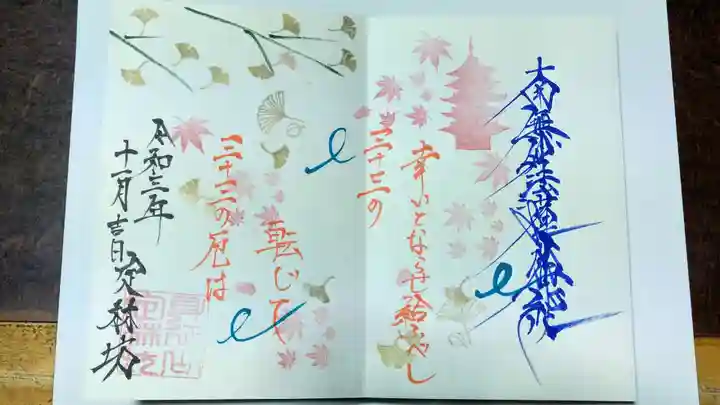 南無妙法蓮華経
幸いとなさせ給うべし
三十三の
転じて
三十三の厄は
令和三年
十一月吉日 定林坊